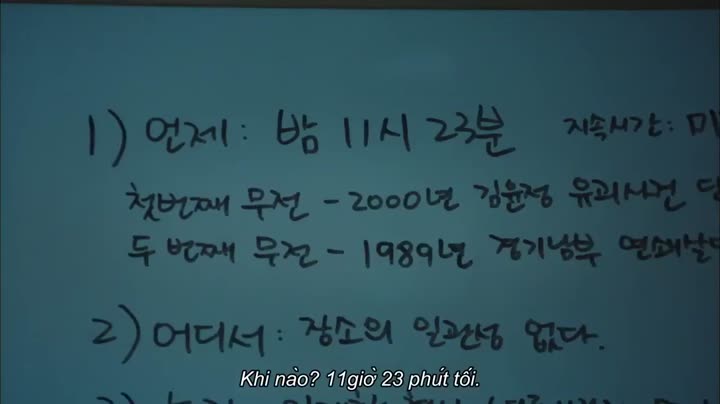 1) 언제: 밤 11시 23분 지속시간: 미
첫번째 무전 - 2000년 김윤정 유괴사건 단
두 번째 무전 - 1989년 경기남부 연쇄살
2) 어디서: 장소의 일관성 없다.
Khi nào? 11giờ 23 phút tối.